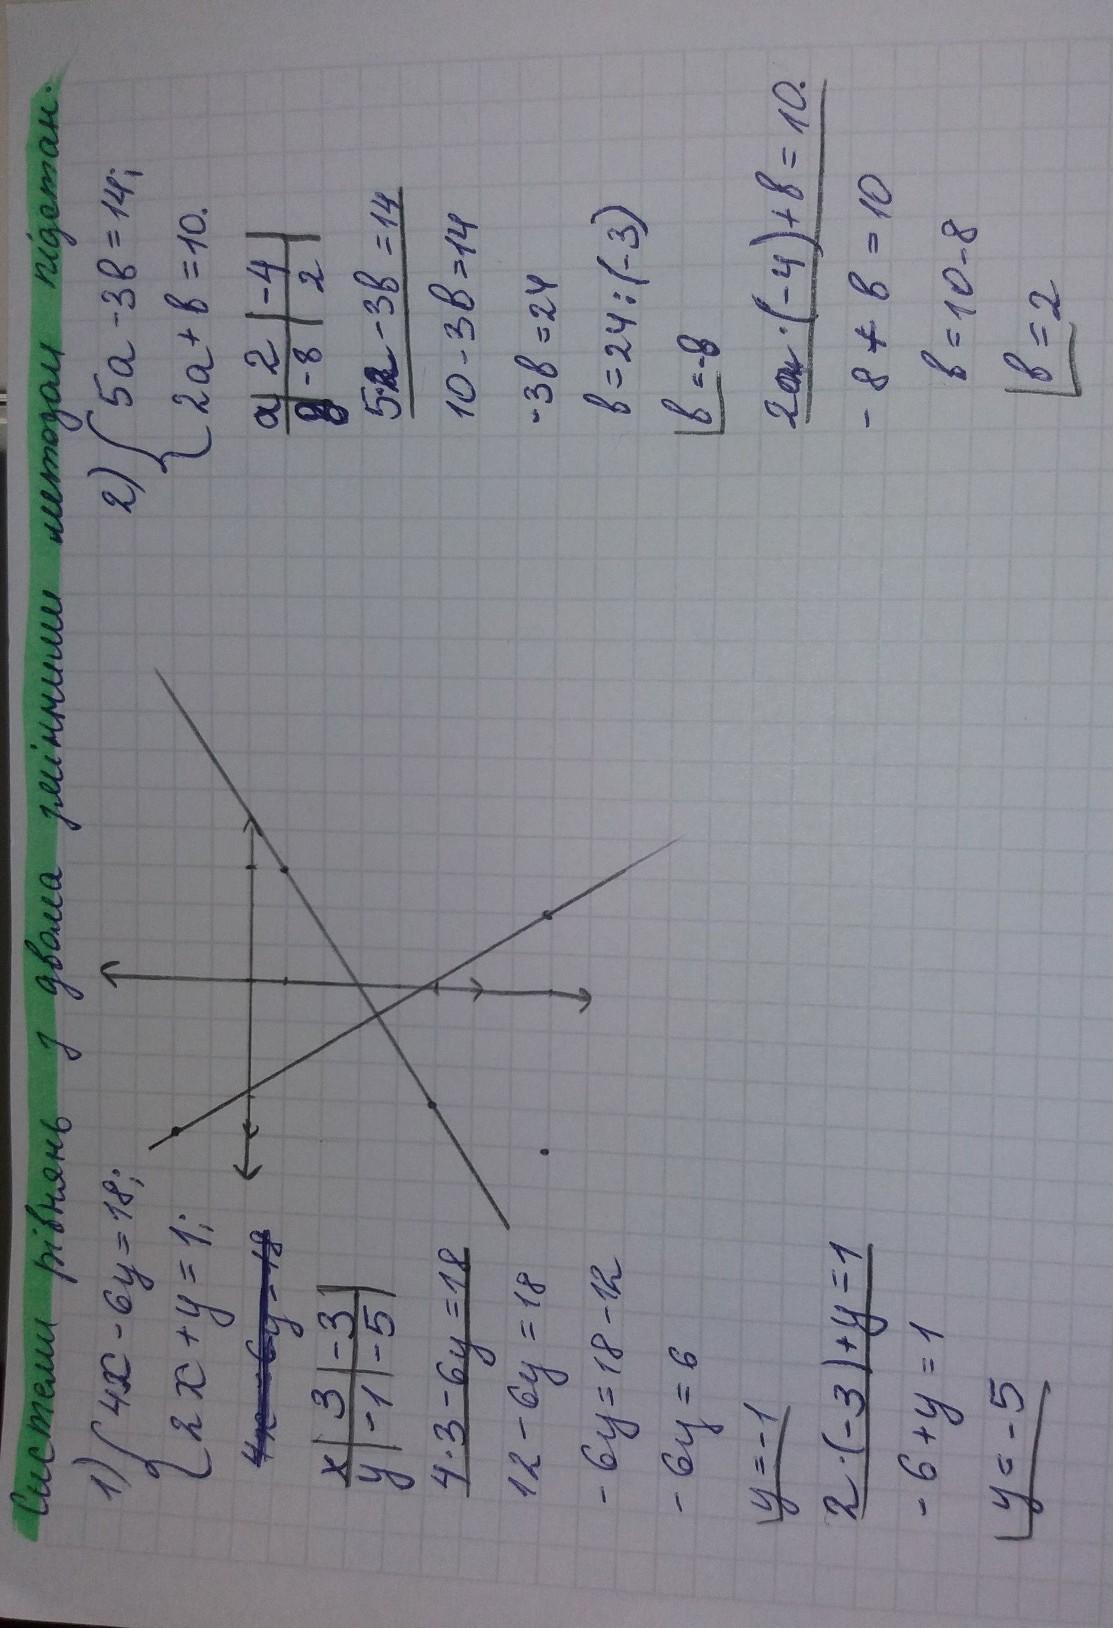 Системи рівнянь з двома змінними методом підстан.
1) { 4x - 6y = 18;
2x + y = 1;
x | 3 | -3 |
y | -1 | -5 |
4·3 - 6y = 18
12 - 6y = 18
- 6y = 18 - 12
- 6y = 6
y = -1
2·(-3) + y = 1
- 6 + y = 1
y = - 5
2) { 5a - 3b = 14;
2a + b = 10.
a | 2 | -4 |
b | -8 | 2 |
5·2 - 3b = 14
10 - 3b = 14
-3b = 24
b = 24 : (-3)
b = -8
2·(-4) + b = 10.
- 8 + b = 10
b = 10 - 8
b = 2